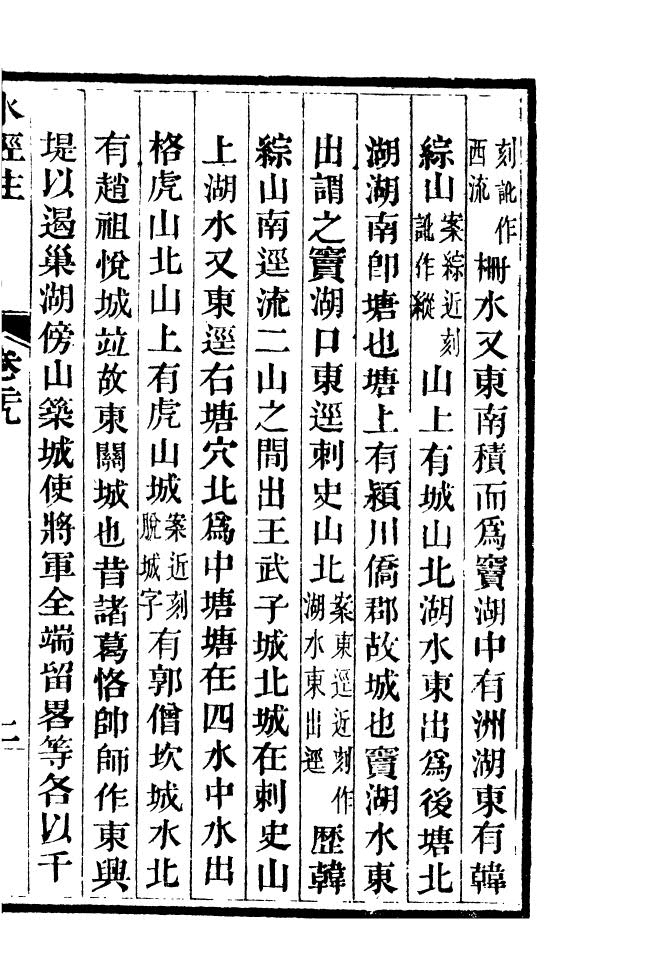 刻訛作西流柵水又東南積而為竇湖中有洲湖東有韓
綜山案綜近刻訛作縱山上有城山北湖水東出為後塘北
湖湖南即塘也塘上有潁川僑郡故城也竇湖水東
出謂之竇湖口東逕刺史山北案東逕近刻作湖水東出逕歷韓
綜山南逕流二山之間出王武子城北城在刺史山
上湖水又東逕右塘穴北為中塘塘在四水中水出
格虎山北山上有虎山城案近刻脫城字有郭僧坎城水北
有趙祖悅城竝故東關城也昔諸葛恪帥師作東興
堤以遏巢湖傍山築城使將軍全端留畧等各以千
水經注 卷二十九 二